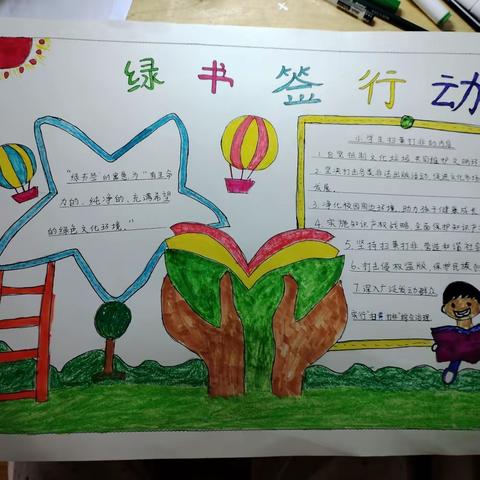 绿书签行动
"绿书签"的寓意为"有生命
力的、纯净的、充满希望
的绿色文化环境。"
小学生扫黄打非的内容
1.自觉抵制文化垃圾,共同维护文明环
2.坚决打击各类非法出版活动,促进文化市场
发展。
3.净化校园周边环境,助力孩子健康成长
4.实施知识产权战略,全面保护知识产
5.坚持扫黄打非 营造和谐社会
6.打击侵权盗版,保护民族
7.深入广泛发动群众
实行"扫黄打非"综合治理